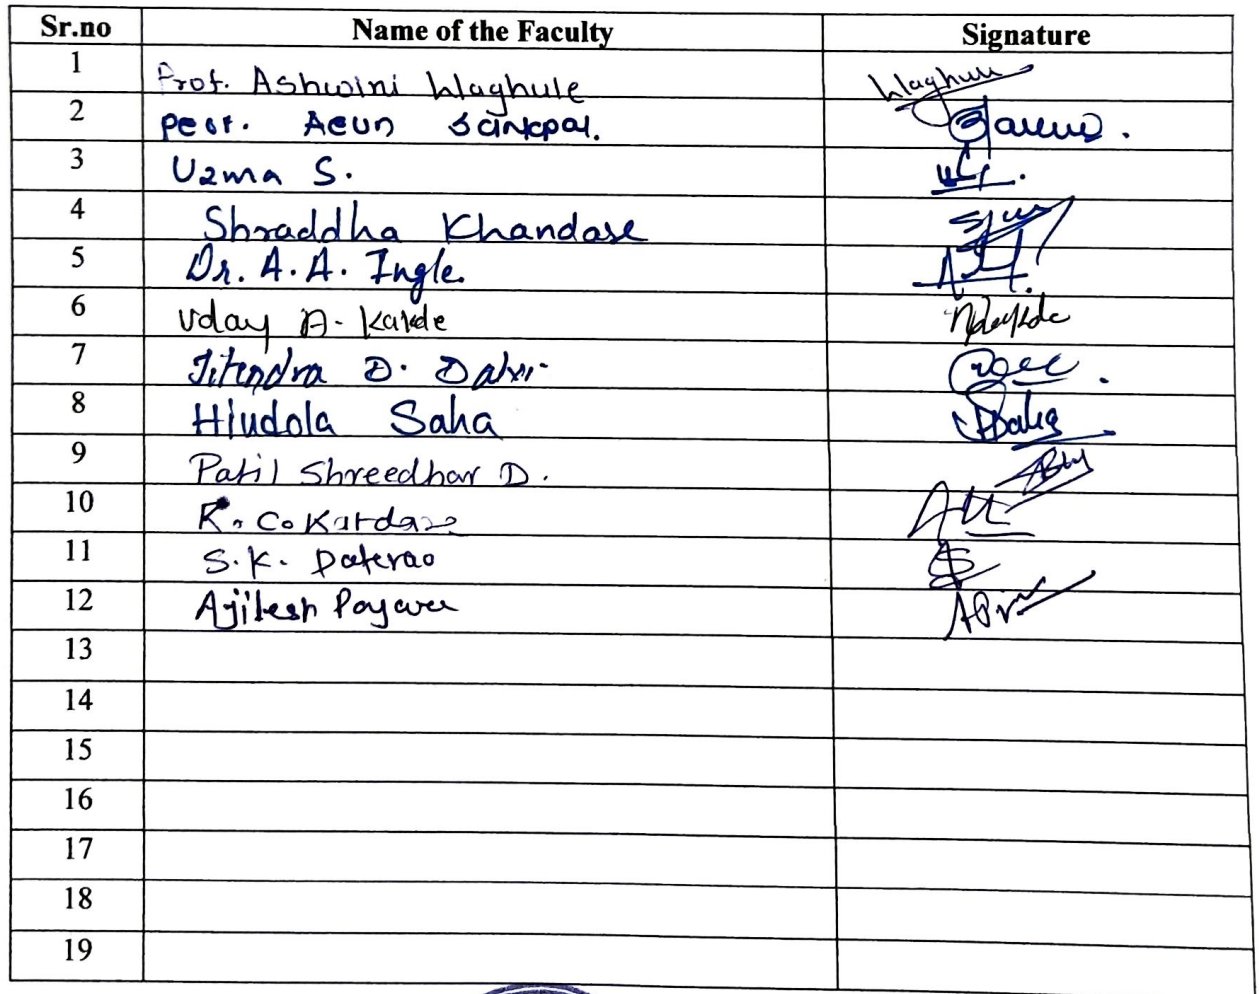 Sr.no Name of the Faculty Signature
1 Prof. Ashwini Waghule Waghule
2 Prof. Arun Sankpal.
3 Uzma S.
4 Shraddha Khandare
5 Dr. A.A. Ingle.
6 Uday A. Kakde
7 Jitendra D. Dalvi
8 Hindola Saha
9 Patil Shreedhar D.
10 R. C. Kardase
11 S.K. Paterao
12 Ajilesh
13
14
15
16
17
18
19